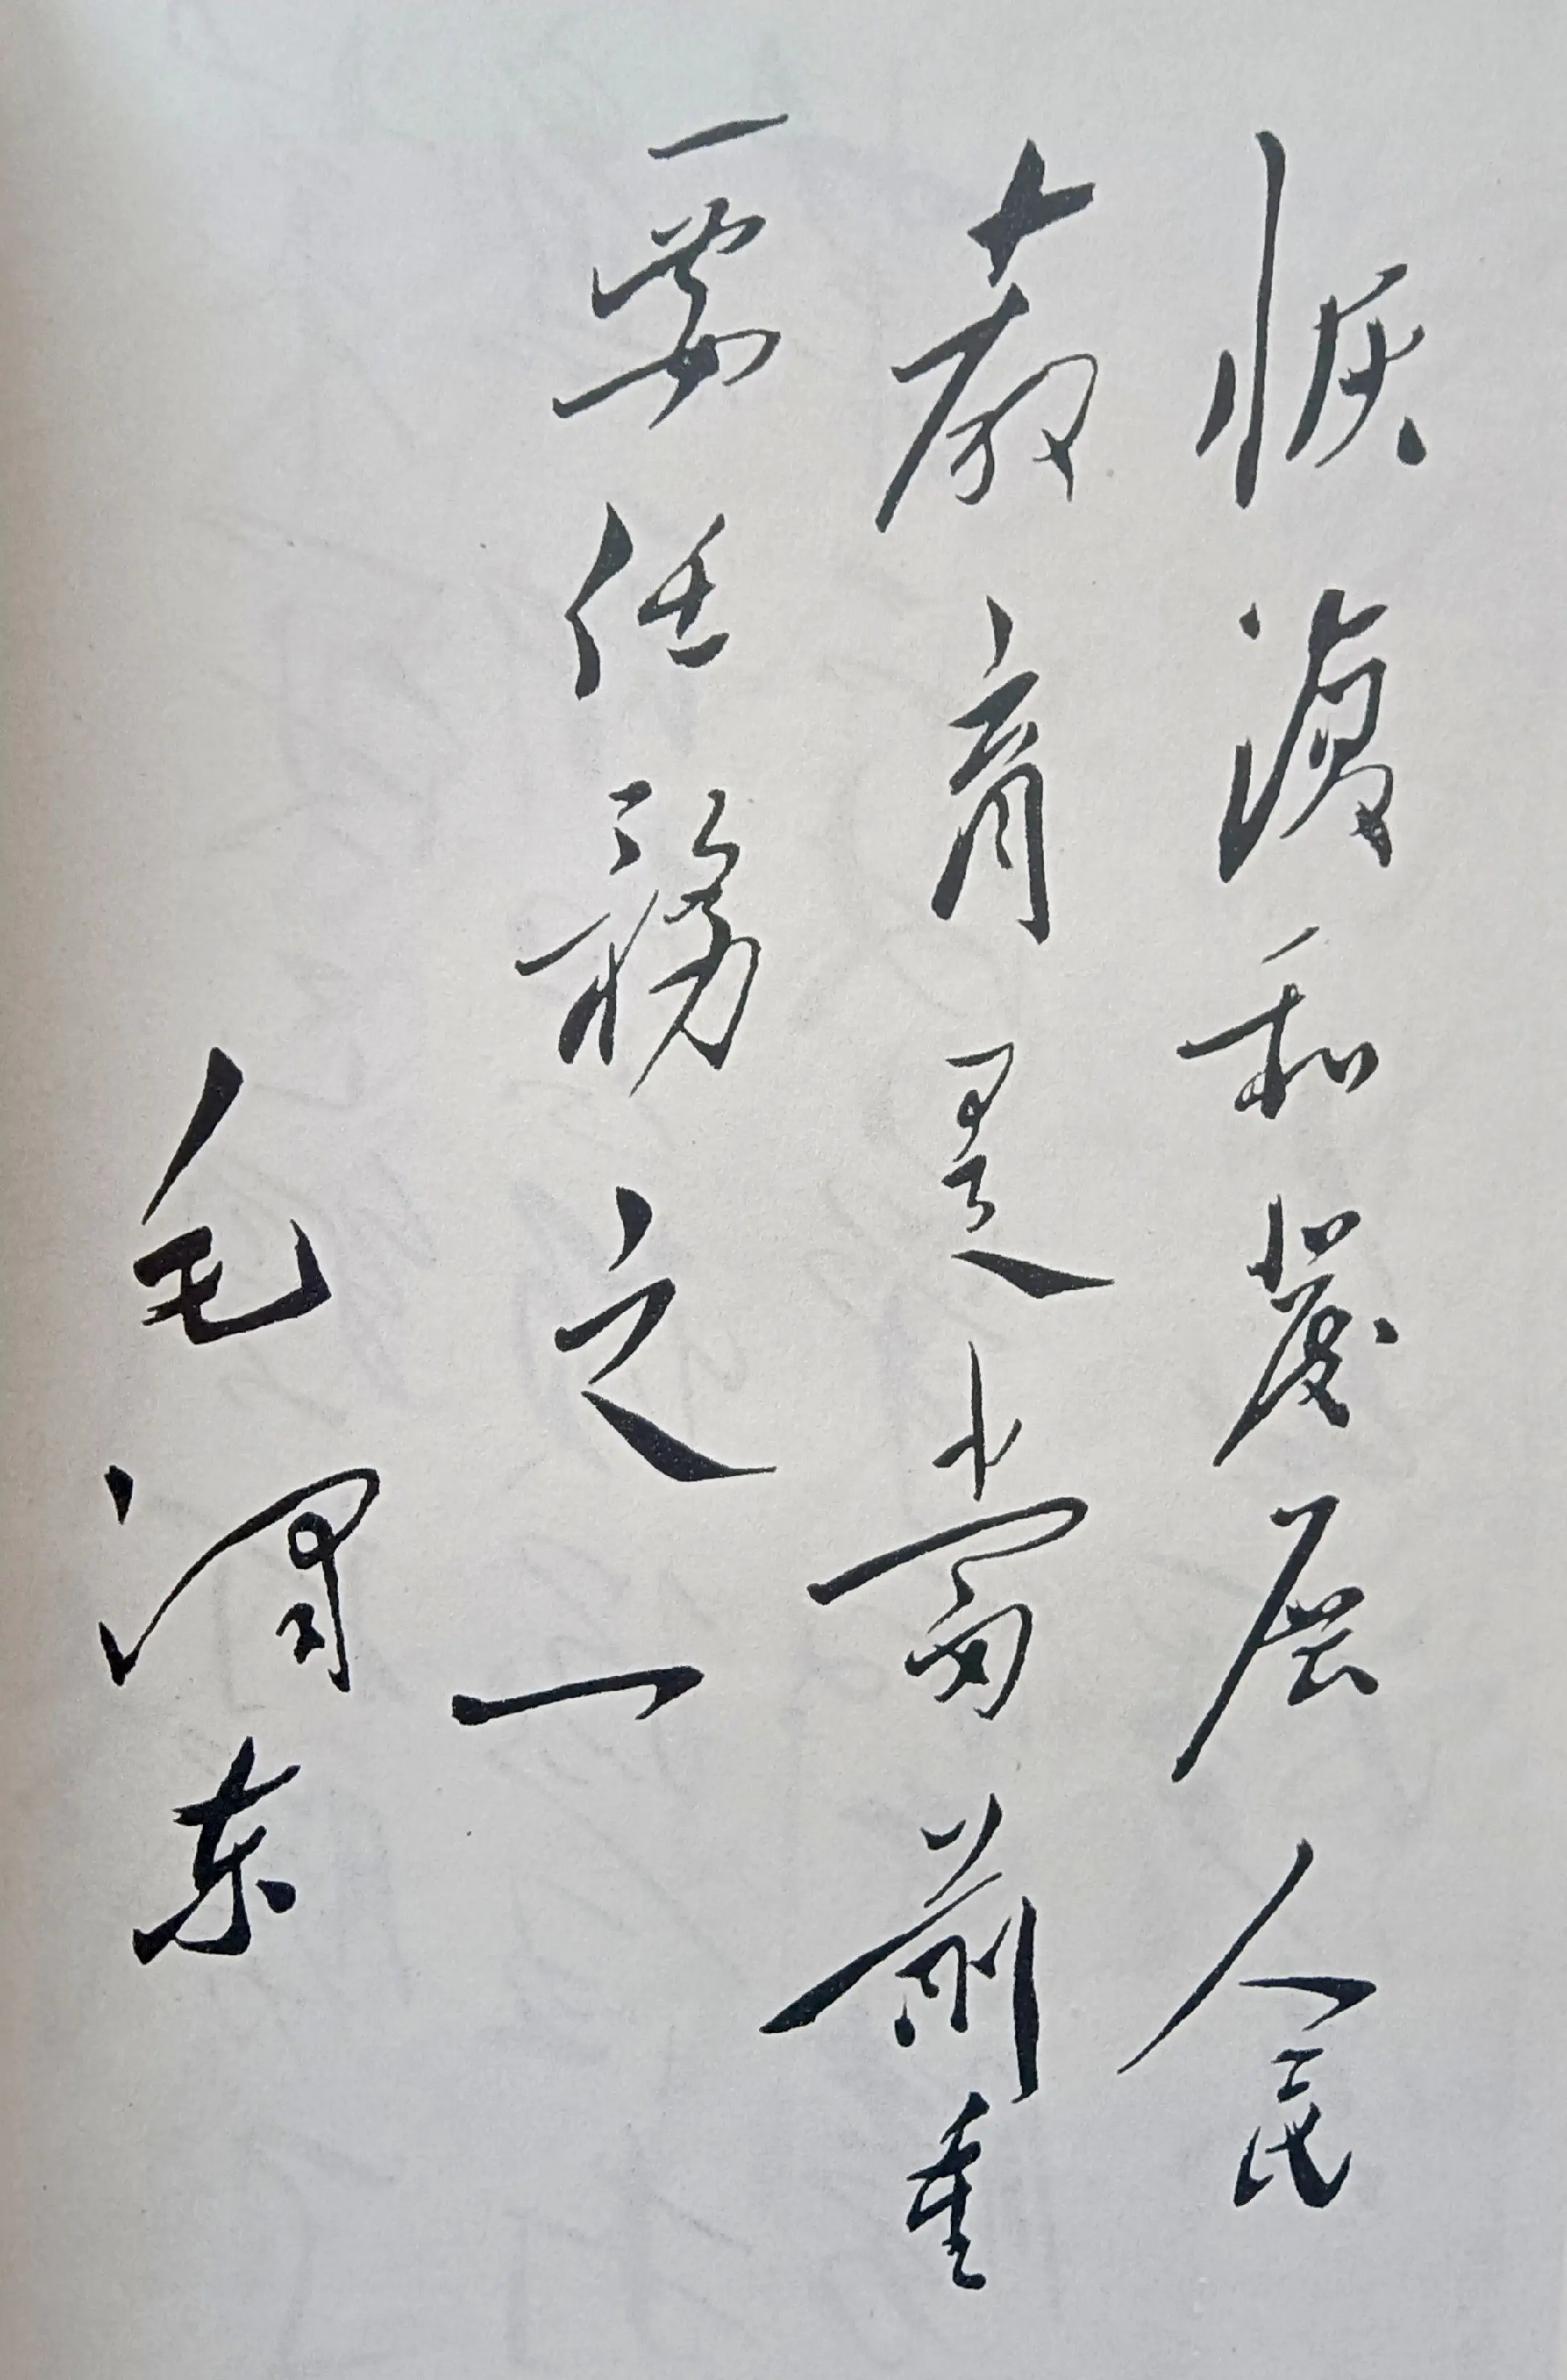 恢復和發展人民
教育是當前重
要任務之一
毛澤東